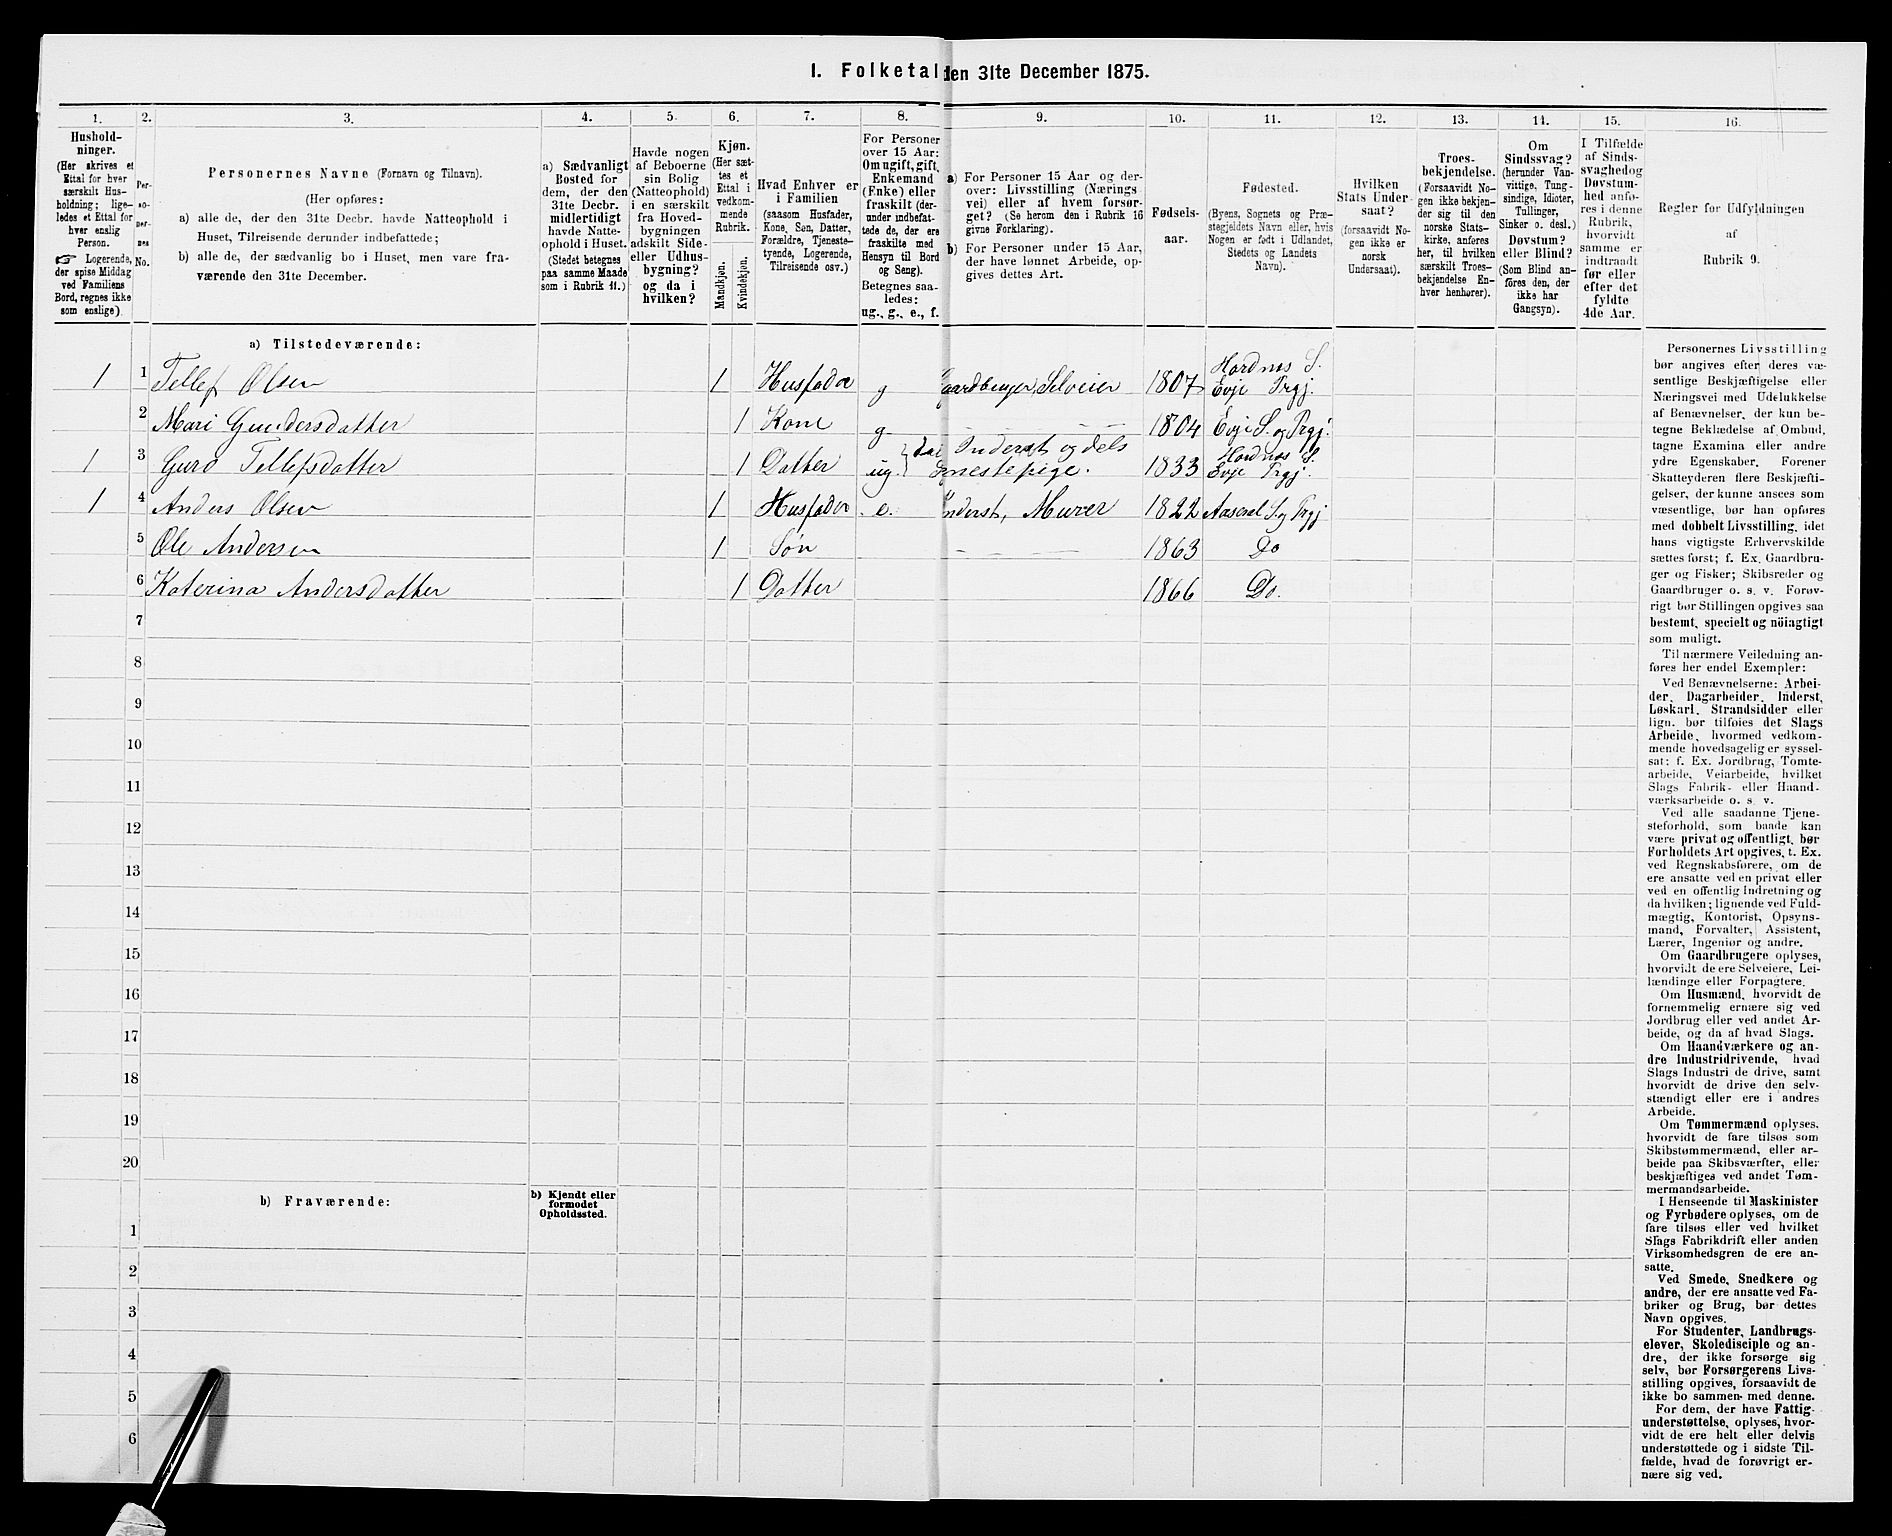 I. Folketal den 31te December 1875.
1.
Hushold-
ninger.
(Her skrives et
Ettal for hver
særskilt Hus-
holdning; lige-
ledes et Ettal for
hver enslig
Person.
☞ Logerende,
der spise Middag
ved Familiens
Bord, regnes ikke
som enslige).
2.
Per-
so-
ner-
nes
No.
3.
Personernes Navne (Fornavn og Tilnavn).
(Her opføres:
a) alle de, der den 31te Decbr. havde Natteophold i
Huset, Tilreisende derunder indbefattede;
b) alle de, der sædvanlig bo i Huset, men vare fra-
værende den 31te December.
4.
a) Sædvanligt
Bosted for
dem, der den
31te Decbr.
midlertidigt
havde Natte-
ophold i Huset.
(Stedet betegnes
paa samme Maade
som i Rubrik 11.)
5.
Havde nogen
af Beboerne
sin Bolig
(Natteophold)
i en særskilt
fra Hoved-
bygningen
adskilt Side-
eller Udhus-
bygning?
og da i
hvilken?
6.
Kjøn.
(Her sæt-
tes et
Ettal i
vedkom-
mende
Rubrik.
Mandkjøn.
Kvindekjøn.
7.
Hvad Enhver er
i Familien
(saasom Husfader,
Kone, Søn, Datter,
Forældre, Tjeneste-
tyende, Logerende,
Tilreisende osv.)
8.
For Personer
over 15 Aar:
Om ugift, gift,
Enkemand
(Enke) eller
fraskilt (der-
under indbefat-
tede de, der ere
fraskilte med
Hensyn til Bord
og Seng).
Betegnes saa-
ledes:
ug., g., e., f.
9.
a) For Personer 15 Aar og der-
over: Livsstilling (Nærings-
vei) eller af hvem forsør-
get? (Se herom den i Rubrik 16
givne Forklaring).
b) For Personer under 15 Aar,
der have lønnet Arbeide, op-
gives dettes Art.
10.
Fødsels-
aar.
11.
Fødested.
(Byens, Sognets og Præ-
stegjeldets Navn eller, hvis
Nogen er født i Udlandet,
Stedets og Landets
Navn).
12.
Hvilken
Stats Under-
saat?
(forsaavidt No-
gen ikke er
norsk
Undersaat).
13.
Troes-
bekjendelse.
(Forsaavidt No-
gen ikke bekjen-
der sig til den
norske Stats-
kirke, anføres
her, til hvilken
særskilt Troes-
bekjendelse En-
hver henhører).
14.
Om
Sindssvag?
(herunder Van-
vittige, Tung-
sindige, Idioter,
Tullinger,
Sinker o. desl.)
Døvstum?
eller Blind?
(Som Blind an-
føres den, der
ikke har
Gangsyn).
15.
I Tilfælde
af Sinds-
svaghed og
Døvstum-
hed anfø-
res i denne
Rubrik,
hvorvidt
samme er
indtraadt
før eller
efter det
fyldte
4de Aar.
16.
Regler for Udfyldningen
af
Rubrik 9.
a) Tilstedeværende:
1 1 Tellef Olsen 1 Husfader g Gaardbruger, Selveier 1807 Hordnes S. Evje Prgj.
2 Mari Gundersdatter 1 Kone g — — — 1804 Evje S. og Prgj.
1 3 Guro Tellefsdatter 1 Datter ug. Inderst og dels Tjenestepige. 1833 Hordnes S. Evje Prgj.
1 4 Anders Olsen 1 Husfader e. Inderst, Murer 1822 Aaseral S. og Prgj
5 Ole Andersen 1 Søn — — — 1863 Do
6 Katerina Andersdatter 1 Datter 1866 Do.
7
8
9
10
11
12
13
14
15
16
17
18
19
20
b) Fraværende:
b) Kjendt eller
formodet
Opholdssted.
1
2
3
4
5
6
Personernes Livsstilling
bør angives efter deres væ-
sentlige Beskjæftigelse eller
Næringsvei med Udelukkelse
af Benævnelser, der kun be-
tegne Beklædelse af Ombud,
tagne Examina eller andre
ydre Egenskaber. Forener
Skatteyderen flere Beskjæfti-
gelser, der kunne ansees som
væsentlige, bør han opføres
med dobbelt Livsstilling, idet
hans vigtigste Erhvervskilde
sættes først; f. Ex. Gaardbru-
ger og Fisker; Skibsreder og
Gaardbruger o. s. v. Forøv-
rigt bør Stillingen opgives saa
bestemt, specielt og nöiagtigt
som muligt.
Til nærmere Veiledning an-
føres her endel Exempler:
Ved Benævnelserne: Arbei-
der, Dagarbeider, Inderst,
Løskarl, Strandsidder eller
lign. bør tilføies det Slags
Arbeide, hvormed vedkom-
mende hovedsagelig er syssel-
sat; f. Ex. Jordbrug, Tomte-
arbeide, Veiarbeide, hvilket
Slags Fabrik- eller Haand-
værksarbeide o. s. v.
Ved alle saadanne Tjene-
steforhold, som baade kan
være privat og offentligt, bør
Forholdets Art opgives, t. Ex.
ved Regnskabsførere, om de
ere ansatte ved en privat eller
ved en offentlig Indretning og
da hvilken; lignende ved Fuld-
mægtig, Kontorist, Opsyns-
mand, Forvalter, Assistent,
Lærer, Ingeniør og andre.
Om Gaardbrugere oplyses,
hvorvidt de ere Selveiere, Lei-
lændinge eller Forpagtere.
Om Husmænd, hvorvidt de
fornemmelig ernære sig ved
Jordbrug eller ved andet Ar-
beide, og da af hvad Slags.
Om Haandværkere og an-
dre Industridrivende, hvad
Slags Industri de drive, samt
hvorvidt de drive den selv-
stændigt eller ere i andres
Arbeide.
Om Tømmermænd oplyses,
hvorvidt de fare tilsøs som
Skibstømmermænd, eller ar-
beide paa Skibsværfter, eller
beskjæftiges ved andet Tøm-
mermandsarbeide.
I Henseende til Maskinister
og Fyrbødere oplyses, om de
fare tilsøs eller ved hvilket
Slags Fabrikdrift eller anden
Virksomhedsgren de ere an-
satte.
Ved Smede, Snedkere og
andre, der ere ansatte ved Fa-
briker og Brug, bør dettes
Navn opgives.
For Studenter, Landbrugs-
elever, Skoledisciple og an-
dre, der ikke forsørge sig
selv, bør Forsørgerens Livs-
stilling opgives, forsaavidt de
ikke bo sammen med denne.
For dem, der have Fattig-
understøttelse, oplyses, hvor-
vidt de ere helt eller delvis
understøttede og i sidste Til-
fælde, hvad de forøvrigt er-
nære sig ved.